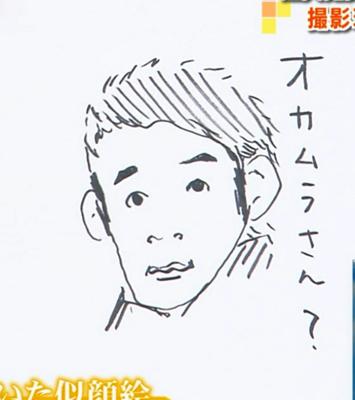 撮影
オカムラさん?
いた似顔絵